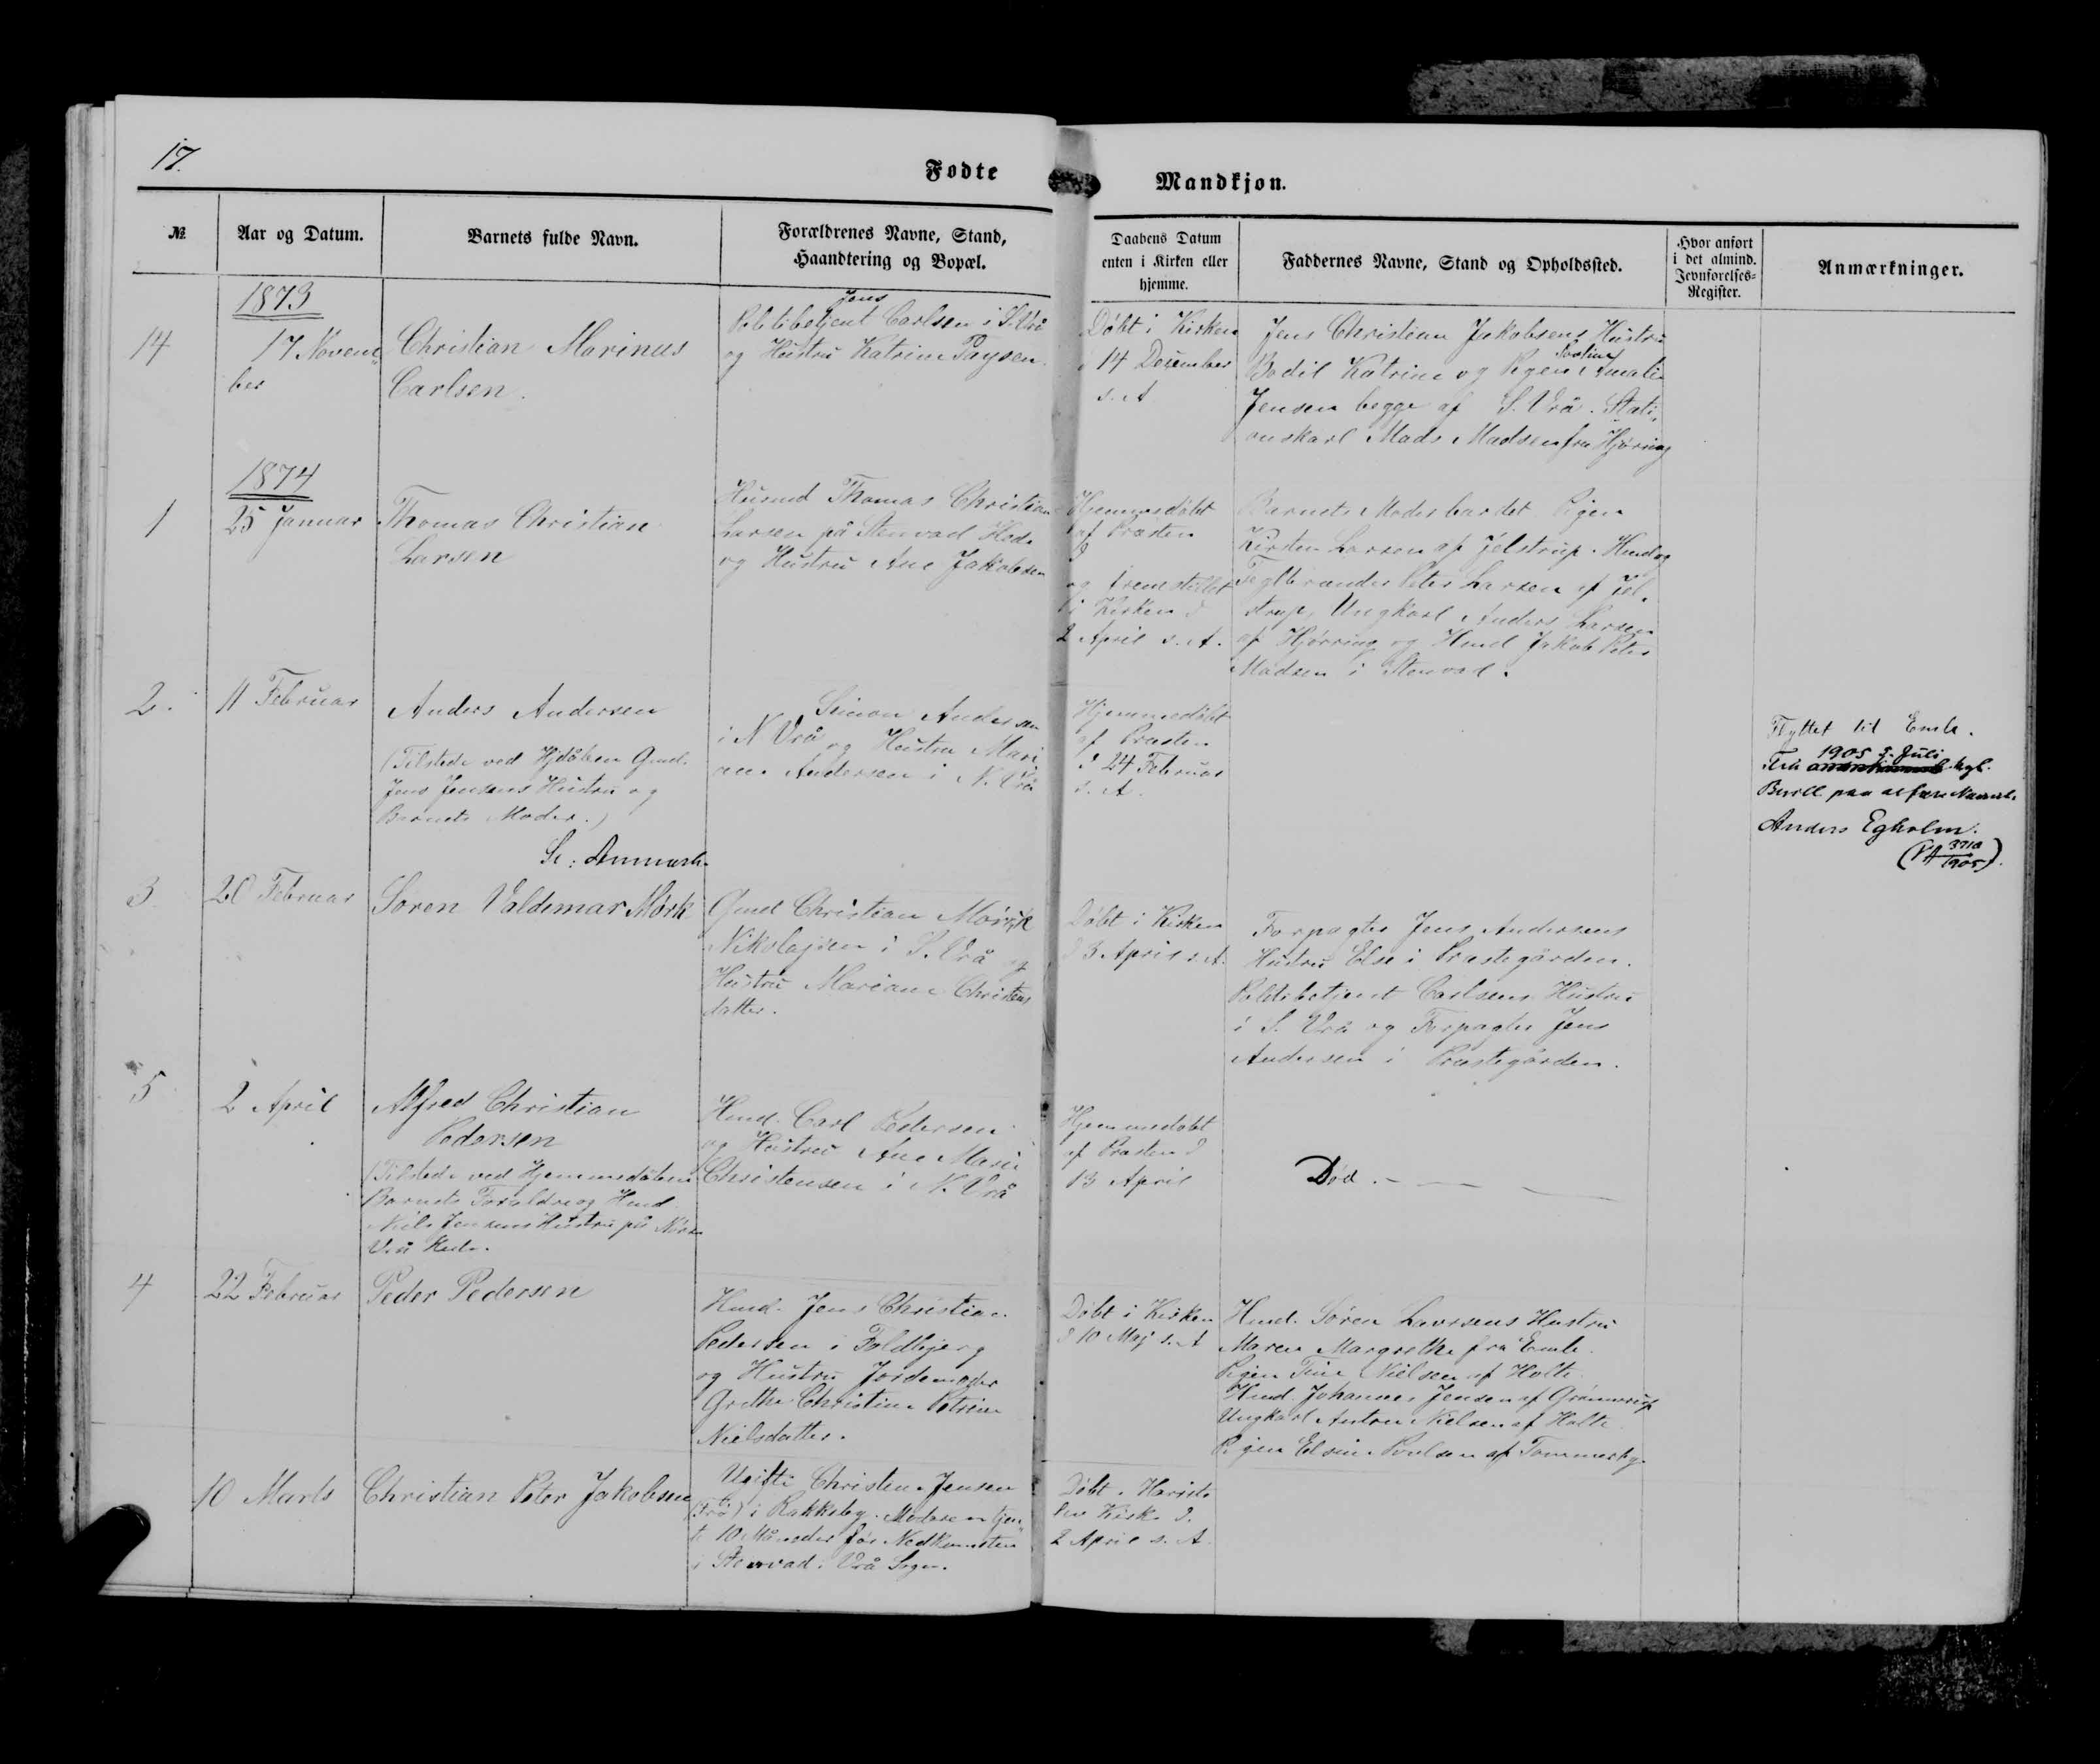 17.
Fødte
Mandkjøn.
№
Aar og Datum.
Barnets fulde Navn.
Forældrenes Navne, Stand,
Haandtering og Bopæl.
Daabens Datum
enten i Kirken eller
hjemme.
Faddernes Navne, Stand og Opholdssted.
Hvor anført
i det almind.
Jevnførelses-
Register.
Anmærkninger.
1873
14
17 Novem
ber
Christian Marinus
Carlsen.
Jens
Politibetjent Carlsen i S. Vrå
og Hustru Katrine Paysen.
Døbt i Kirken
14 December
s. A
Jens Christian Jakobsens Hustru
Bodil Katrine og Pigen Amali
Jensen begge af S. Vrå. Stati
onskarl Mads Madsen fra Hjøring
1874
1
25 Januar
Thomas Christian
Larsen
Husmd Thomas Christian
Larsen på Stenvad Hede
og Hustru Ane Jakobsen
Hjemmedøbt
af Præsten
og fremstillet
i Kirken d
2 April s. A.
Barnets Moder bar det Pigen
Kirsten Larsen af Jelstrup. Hmd og
Teglbrænder Peter Larsen af Jel
strup, Ungkarl Anders Larsen
af Hjørring og Hmd Jakob Peter
Madsen i Stenvad.
2.
11 Februar
Anders Andersen
(Tilstede ved Hjdåben Gmd.
Jens Jensens Hustru og
Barnets Moder.)
Se: Anmærk.
Simon Andersen
i N Vrå og Hustru Mari
ane Andersen i N. Vrå
Hjemmedøbt
af Præsten
d 24 Februar
s. A.
Flyttet til Emb.
1905 3. Juli
kgl.
Bevill. paa at føre Navnet
Anders Egholm.
3
20 Februar
Søren Valdemar Mørk
Gmd Christian Mørk
Nikolajsen i S. Vrå og
Hustru Mariane Christens
datter.
Døbt i Kirken
d 3 April s. A.
Forpagter Jens Andersens
Hustru Else i Præstegården.
Politibetjent Carlsens Hustru
i S. Vrå og Forpagter Jens
Andersen i Præstegården.
5
2 April
Alfred Christian
Pedersen
(Tilstede ved Hjemmedåben
Barnets Forældre og Hmd
Niels Jensens Hustru på Nørre
Vrå Hede.
Hmd. Carl Pedersen
og Hustru Ane Marie
Christensen i N. Vrå
Hjemmedøbt
af Præsten d
13 April
Død.
4
22 Februar
Peder Pedersen
Hmd. Jens Christian
Pedersen i Foldbjerg
og Hustru Jordemoder
Grethe Christine Petrine
Nielsdatter.
Døbt i Kirken
d 10 Maj s. A
Hmd. Søren Lavrsens Hustru
Maren Margrethe fra Emb.
Pigen Tine Nielsen af Holte
Hmd. Johannes Jensen af Grønnerup
Ungkarl Anton Nielsen af Holte
Pigen Elsine Poulsen af Tommerby.
10 Marts
Christian Peter Jakobsen
Ugifte Christine Jensen
i Rakkeby. Moderen tjen
te 10 Måneder før Nedkomsten
i Stenvad. Vrå Sogn.
Døbt i Harrits
lev Kirke d.
2 April s. A.